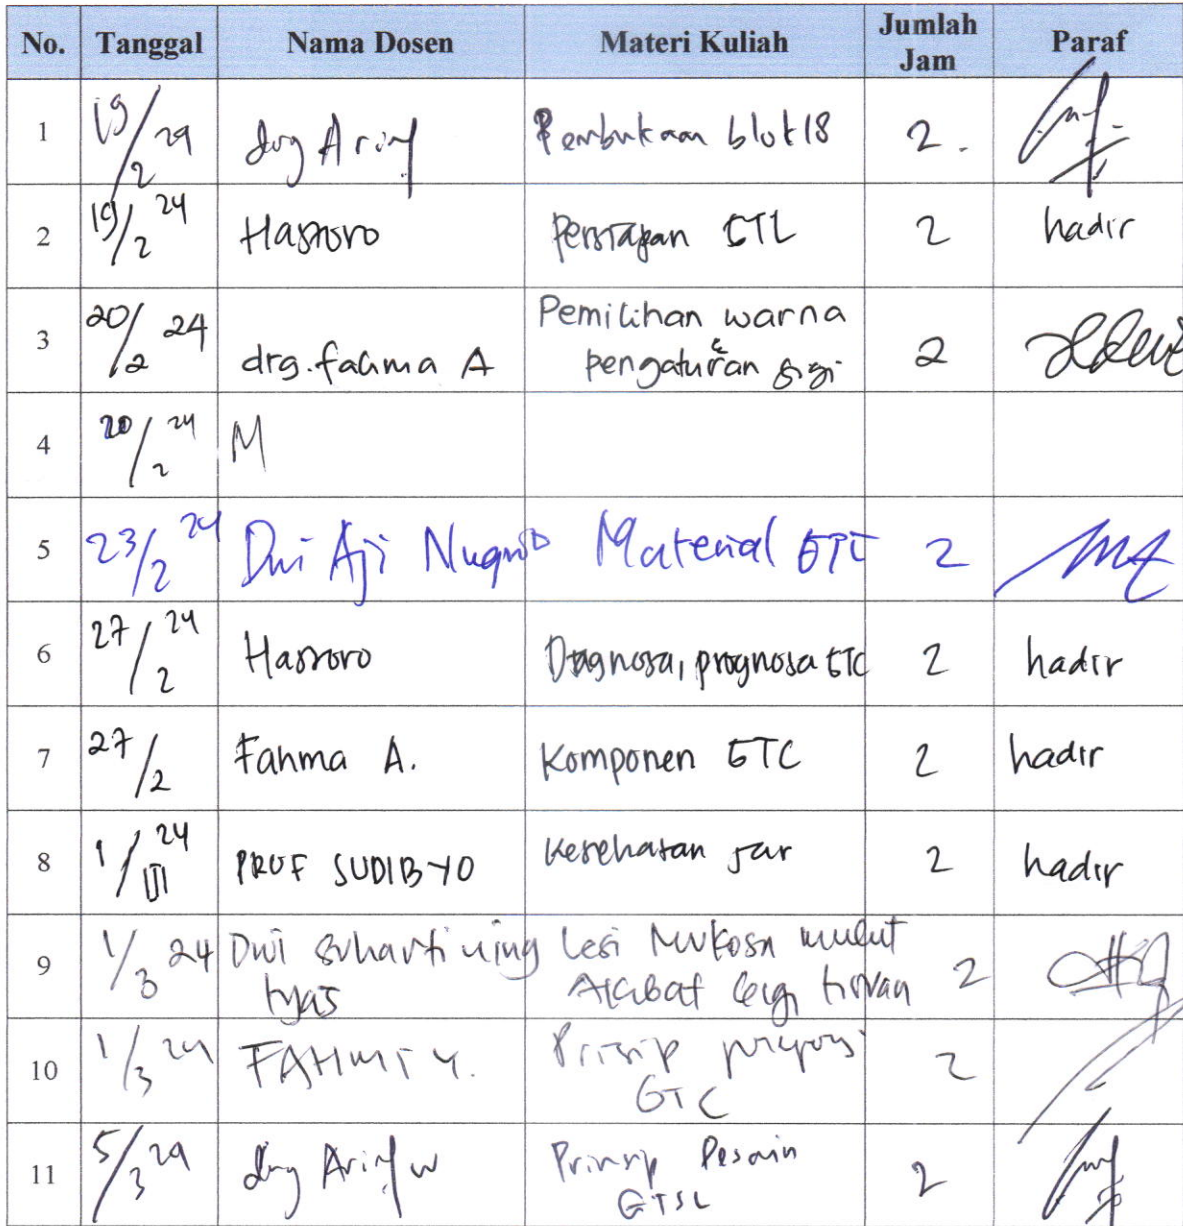 No. Tanggal Nama Dosen Materi Kuliah Jumlah Jam Paraf
1 19/2 24 drg Arief Pembukaan blok 18 2.
2 19/2 24 Hastoro Persiapan GTL 2 hadir
3 20/2 24 drg. fahma A Pemilihan warna & pengaturan gigi 2
4 20/2 24 M
5 23/2 24 Dwi Aji Nugroho Material GTC 2
6 27/2 24 Hastoro Diagnosa, prognosa GTC 2 hadir
7 27/2 Fahma A. Komponen GTC 2 hadir
8 1/III 24 PROF SUDIBYO Kesehatan jar 2 hadir
9 1/3 24 Dwi Suhartiningtyas Lesi Mukosa mulut Akibat Gigi tiruan 2
10 1/3 24 FAHMI Y. Prinsip preparasi GTC 2
11 5/3 24 drg Arief W Prinsip Desain GTSL 2